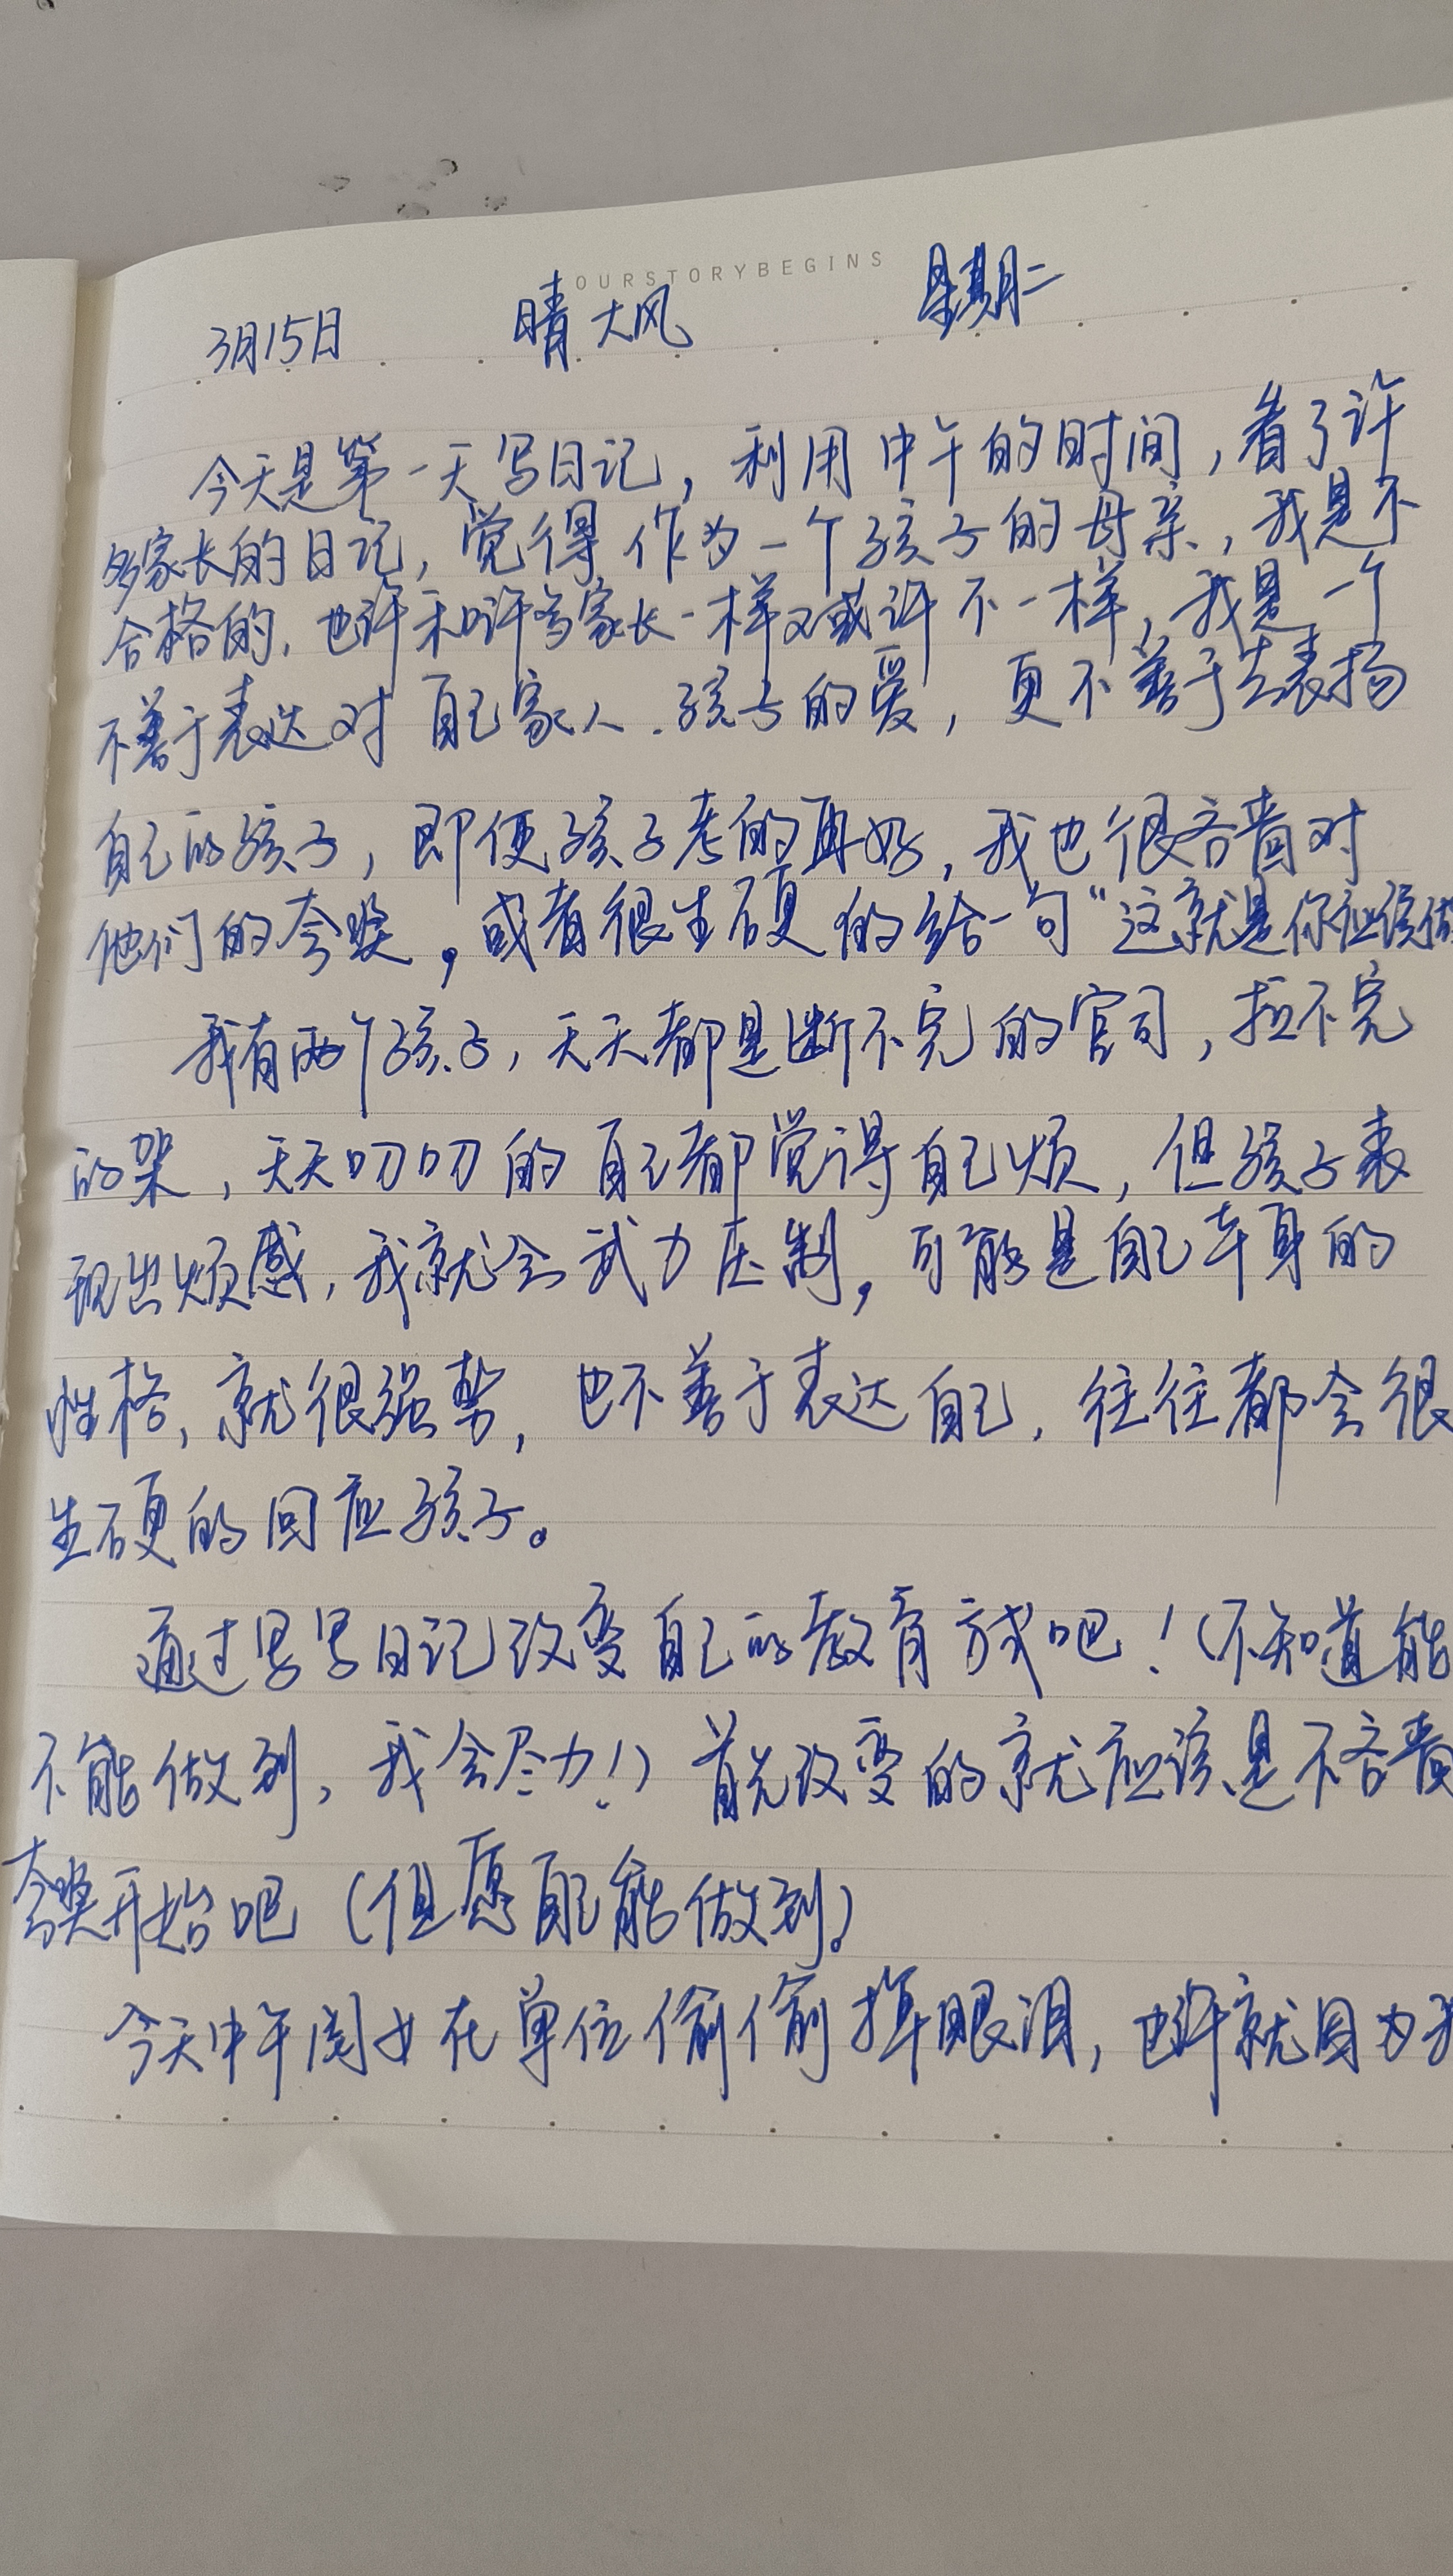 OURSTORYBEGINS
3月15日 晴 大风 星期二
今天是第一天写日记,利用中午的时间,看了许
多家长的日记,觉得作为一个孩子的母亲,我是不
合格的,也许和许多家长一样又或许不一样,我是一个
不善于表达对自己家人、孩子的爱,更不善于去表扬
自己的孩子,即便孩子考的再好,我也很吝啬对
他们的夸奖,或者很生硬的给一句“这就是你应该做
我有两个孩子,天天都是断不完的官司,拉不完
的架,天天叨叨的自己都觉得自己烦,但孩子表
现出烦感,我就会武力压制,可能是自己本身的
性格,就很强势,也不善于表达自己,往往都会很
生硬的回应孩子。
通过写写日记改变自己的教育方式吧!(不知道能
不能做到,我会尽力!)首先改变的就应该是不吝啬
夸奖开始吧(但愿自己能做到)
今天中午闺女在单位偷偷抹眼泪,也许就因为我